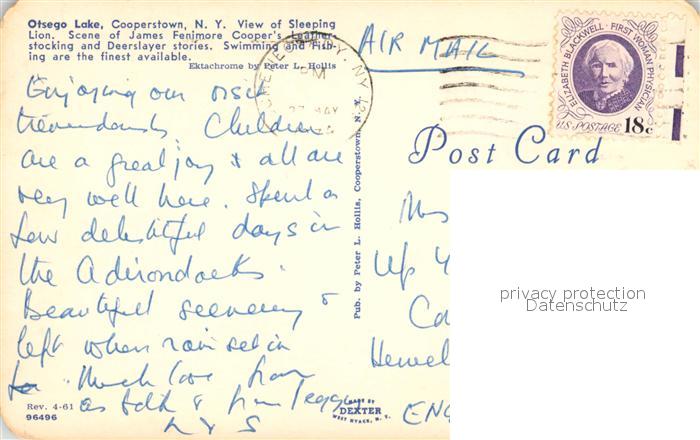 Otsego Lake, Cooperstown, N. Y. View of Sleeping
Lion. Scene of James Fenimore Cooper's Leather-
stocking and Deerslayer stories. Swimming and Fish-
ing are the finest available.
Ektachrome by Peter L. Hollis
AIR MAIL
PM
27 MAY
N.Y.
ELIZABETH BLACKWELL · FIRST WOMAN PHYSICIAN
U.S. POSTAGE 18c
Post Card
Enjoying our visit
tremendously Children
are a great joy & all are
very well here. Spent a
few delightful days in
the Adirondacks.
Beautiful scenery &
left when rain set in
Much love from
as both & from Peggy
Pub. by Peter L. Hollis, Cooperstown, N. Y.
Up
Hewel
ENG
Rev. 4-61
96496
MADE BY
DEXTER
WEST NYACK, N. Y.
privacy protection
Datenschutz